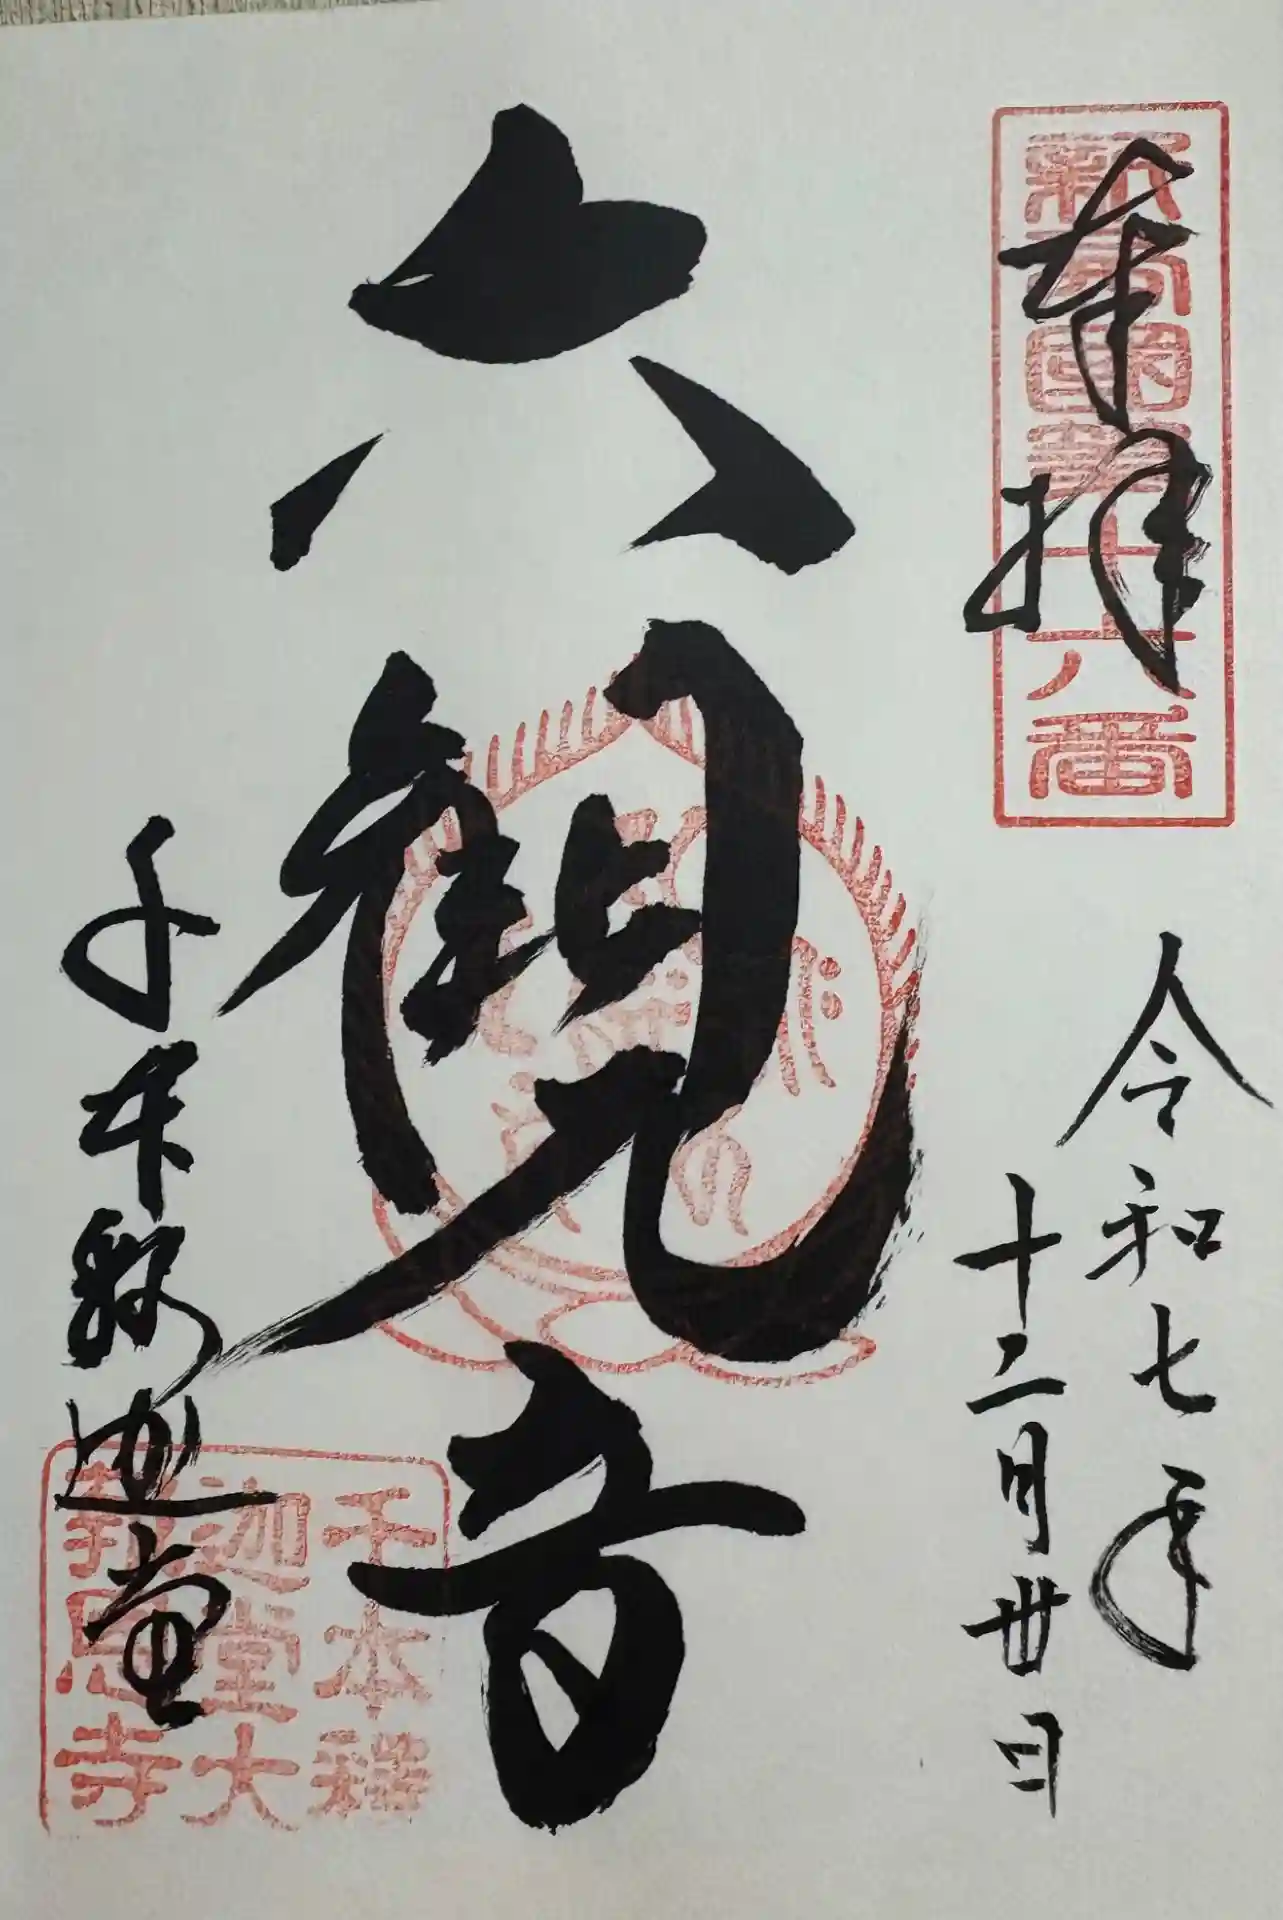 奉拝
新西国第十六番
令和七年
十二月卅日
六観音
千本釈迦堂
千本釋
迦堂大
報恩寺